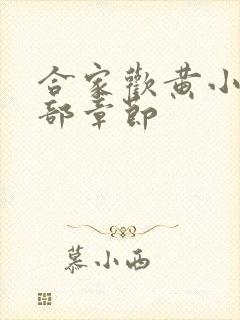 合家歡黄小
部章節
慕小西